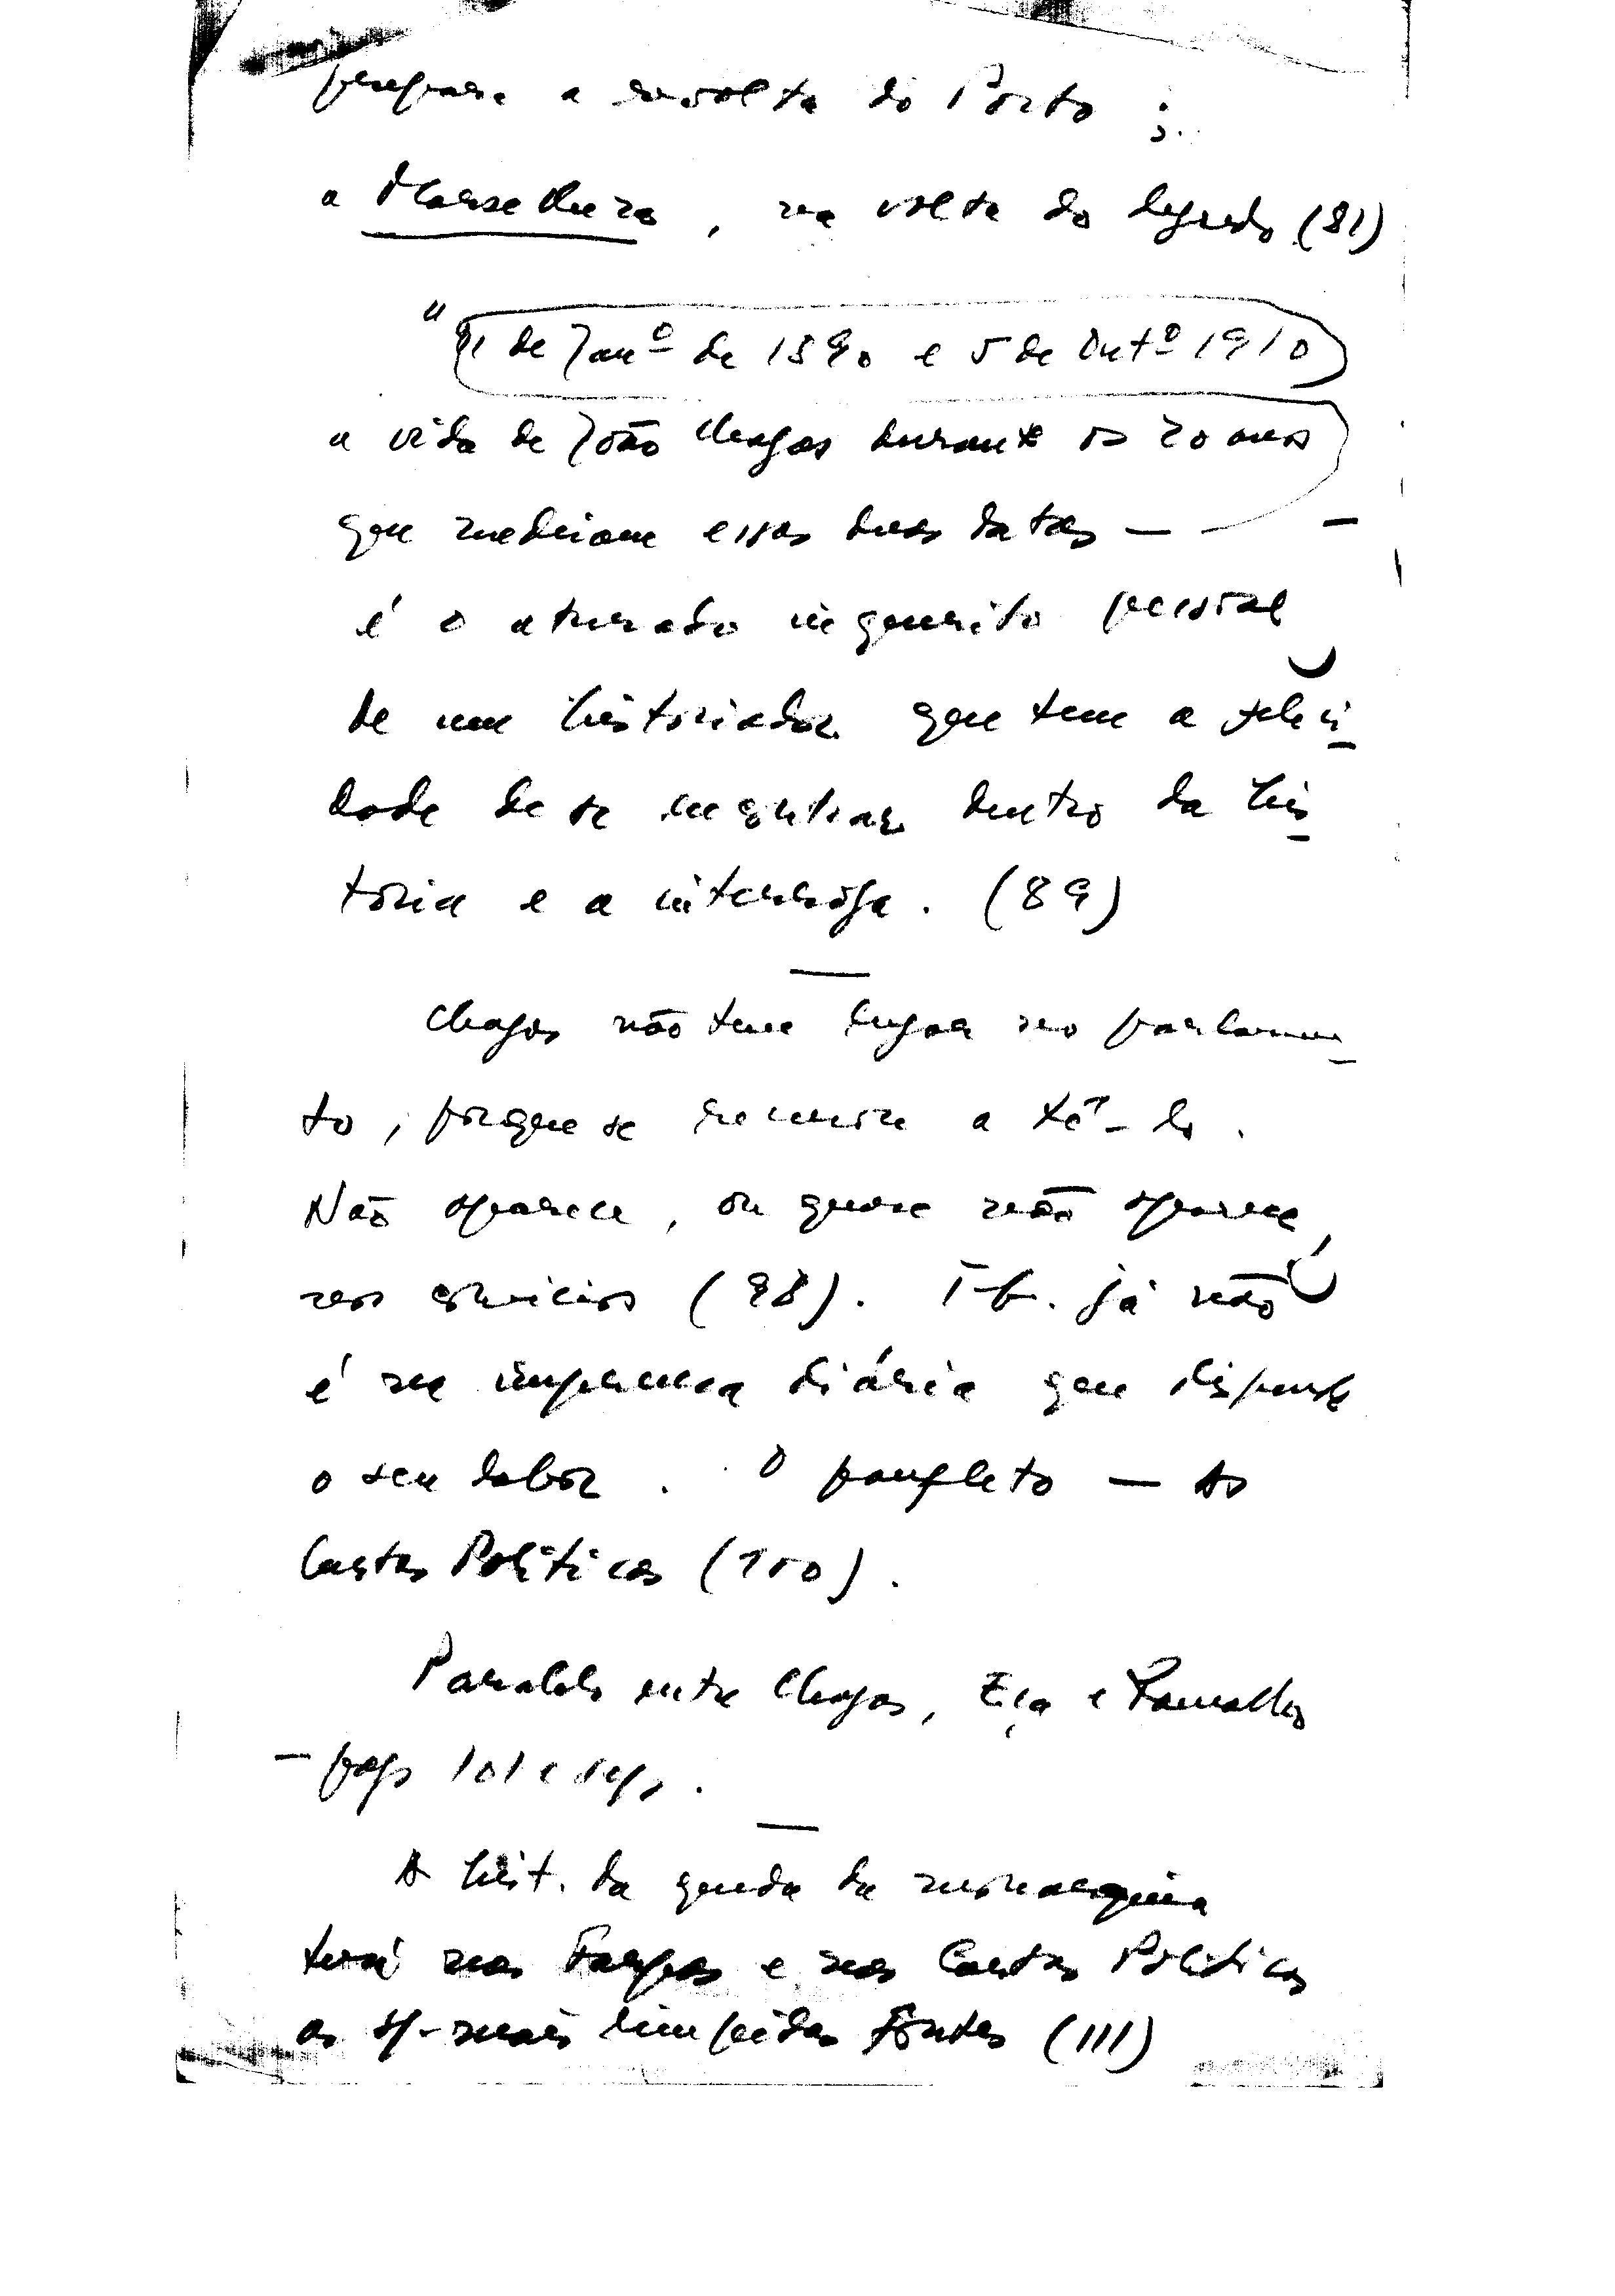 prepara a revolta do Porto ;
a Marselheza, na volta do degredo (81)
"11 de Janº de 1890 e 5 de Outº 1910
a vida de João Chagas durante os 20 anos
que medeiam essas duas datas —
é o aturado inquérito pessoal
de um historiador que tem a felici-
dade de se encontrar dentro da his-
tória e a interroga. (89)
Chagas não tem lugar no parlamen-
to, porque se recusou a tê-lo.
Não aparece, ou quase não aparece,
nos comícios (98). Tb. já não
é na imprensa diária que dispende
o seu labor. O panfleto — As
Cartas Politicas (100).
Paralelo entre Chagas, Eça e Ramalho
— pags 101 e segs.
A hist. da queda da monarquia
terá nas Farpas e nas Cartas Politicas
as mais limpidas fontes (111)